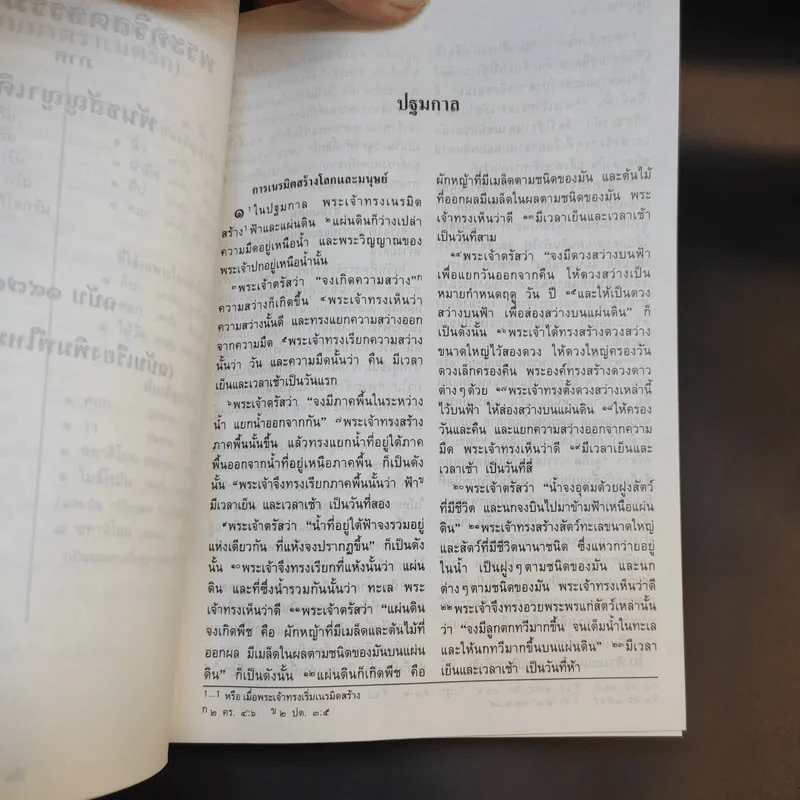 ปฐมกาล
การเนรมิตสร้างโลกและมนุษย์
๑ ¹ในปฐมกาล พระเจ้าทรงเนรมิต
สร้าง¹ฟ้าและแผ่นดิน ๒แผ่นดินก็ว่างเปล่า
ความมืดอยู่เหนือน้ำ และพระวิญญาณของ
พระเจ้าปกอยู่เหนือน้ำนั้น
๓พระเจ้าตรัสว่า “จงเกิดความสว่าง”ก
ความสว่างก็เกิดขึ้น ๔พระเจ้าทรงเห็นว่า
ความสว่างนั้นดี และทรงแยกความสว่างออก
จากความมืด ๕พระเจ้าทรงเรียกความสว่าง
นั้นว่า วัน และความมืดนั้นว่า คืน มีเวลา
เย็นและเวลาเช้าเป็นวันแรก
๖พระเจ้าตรัสว่า “จงมีภาคพื้นในระหว่าง
น้ำ แยกน้ำออกจากกัน” ๗พระเจ้าทรงสร้าง
ภาคพื้นนั้นขึ้น แล้วทรงแยกน้ำที่อยู่ใต้ภาค
พื้นออกจากน้ำที่อยู่เหนือภาคพื้น ก็เป็นดัง
นั้น ๘พระเจ้าจึงทรงเรียกภาคพื้นนั้นว่า ฟ้าข
มีเวลาเย็น และเวลาเช้า เป็นวันที่สอง
๙พระเจ้าตรัสว่า “น้ำที่อยู่ใต้ฟ้าจงรวมอยู่
แห่งเดียวกัน ที่แห้งจงปรากฏขึ้น” ก็เป็นดัง
นั้น ๑๐พระเจ้าจึงทรงเรียกที่แห้งนั้นว่า แผ่น
ดิน และที่ซึ่งน้ำรวมกันนั้นว่า ทะเล พระ
เจ้าทรงเห็นว่าดี ๑๑พระเจ้าตรัสว่า “แผ่นดิน
จงเกิดพืช คือ ผักหญ้าที่มีเมล็ดและต้นไม้ที่
ออกผล มีเมล็ดในผลตามชนิดของมันบนแผ่น
ดิน” ก็เป็นดังนั้น ๑๒แผ่นดินก็เกิดพืช คือ
1...1 หรือ เมื่อพระเจ้าทรงเริ่มเนรมิตสร้าง
ก ๒ คร. ๔:๖ ข ๒ ปต. ๓:๕
ผักหญ้าที่มีเมล็ดตามชนิดของมัน และต้นไม้
ที่ออกผลมีเมล็ดในผลตามชนิดของมัน พระ
เจ้าทรงเห็นว่าดี ๑๓มีเวลาเย็นและเวลาเช้า
เป็นวันที่สาม
๑๔พระเจ้าตรัสว่า “จงมีดวงสว่างบนฟ้า
เพื่อแยกวันออกจากคืน ให้ดวงสว่างเป็น
หมายกำหนดฤดู วัน ปี ๑๕และให้เป็นดวง
สว่างบนฟ้า เพื่อส่องสว่างบนแผ่นดิน” ก็
เป็นดังนั้น ๑๖พระเจ้าได้ทรงสร้างดวงสว่าง
ขนาดใหญ่ไว้สองดวง ให้ดวงใหญ่ครองวัน
ดวงเล็กครองคืน พระองค์ทรงสร้างดวงดาว
ต่างๆด้วย ๑๗พระเจ้าทรงตั้งดวงสว่างเหล่านี้
ไว้บนฟ้า ให้ส่องสว่างบนแผ่นดิน ๑๘ให้ครอง
วันและคืน และแยกความสว่างออกจากความ
มืด พระเจ้าทรงเห็นว่าดี ๑๙มีเวลาเย็นและ
เวลาเช้า เป็นวันที่สี่
๒๐พระเจ้าตรัสว่า “น้ำจงอุดมด้วยฝูงสัตว์
ที่มีชีวิต และนกจงบินไปมาข้ามฟ้าเหนือแผ่น
ดิน” ๒๑พระเจ้าทรงสร้างสัตว์ทะเลขนาดใหญ่
และสัตว์ที่มีชีวิตนานาชนิด ซึ่งแหวกว่ายอยู่
ในน้ำ เป็นฝูงๆตามชนิดของมัน และนก
ต่างๆตามชนิดของมัน พระเจ้าทรงเห็นว่าดี
๒๒พระเจ้าจึงทรงอวยพระพรแก่สัตว์เหล่านั้น
ว่า “จงมีลูกดกทวีมากขึ้น จนเต็มน้ำในทะเล
และให้นกทวีมากขึ้นบนแผ่นดิน” ๒๓มีเวลา
เย็นและเวลาเช้า เป็นวันที่ห้า